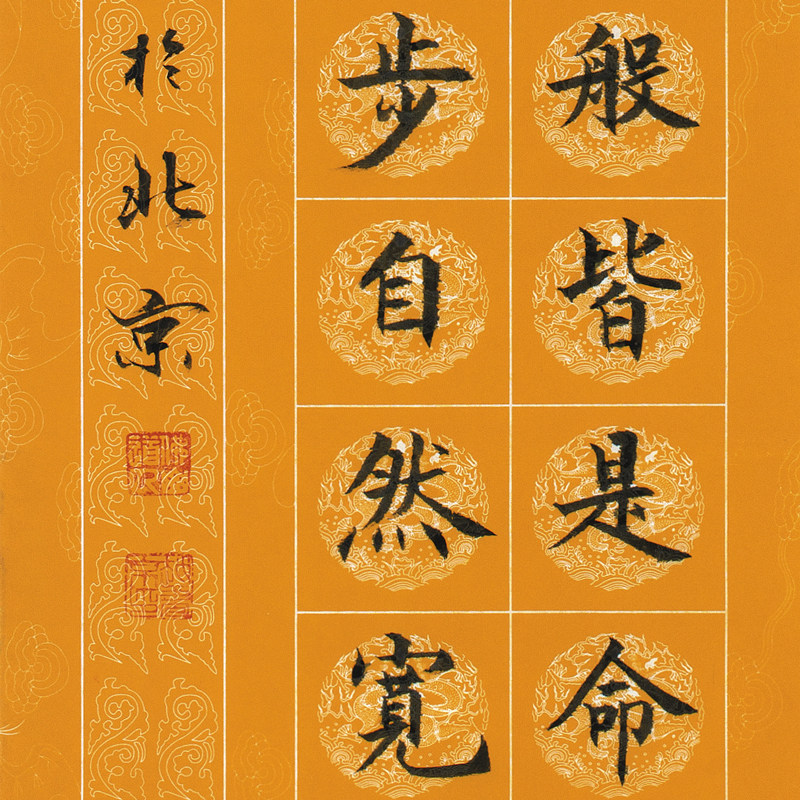 般皆是命
步自然寬
於北京